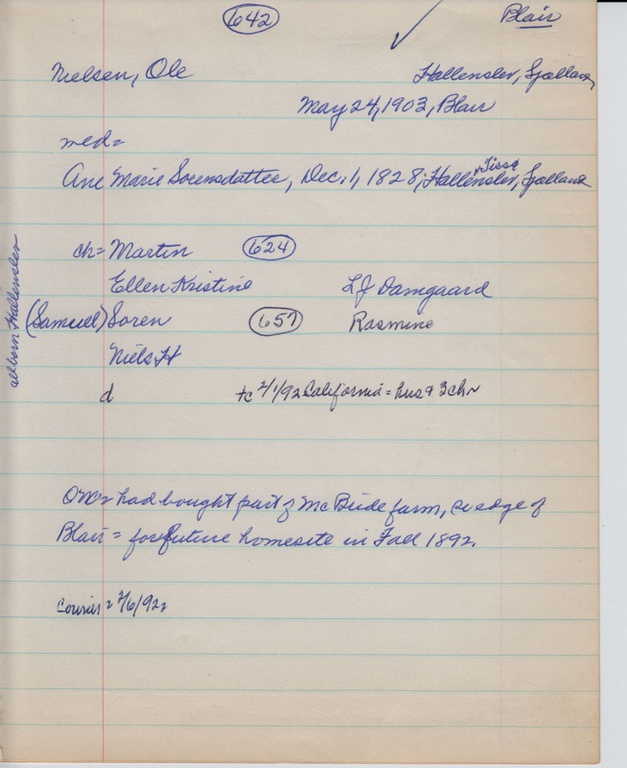 642
Blair
Nielsen, Ole
Hallenslev, Sjælland
May 24, 1903, Blair
med=
Ane Marie Sorensdatter, Dec. 1, 1828, Hallenslev, Sjælland
Tissø
ch= Martin 624
Ellen Kristine LJ Damgaard
(Samuel) Soren 657 Rasmine
Niels H
d tc 2/1/92 California = hus & 3 chn
all born Hallenslev
had bought part of McBride farm, edge of
Blair = for future homesite in Fall 1892.
Courier = /6/92